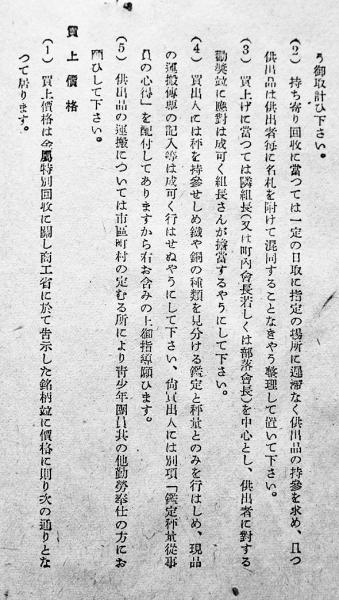 う御取計ひ下さい。
（2） 持ち寄り回收に當つては一定の日取に指定の場所に遲滯なく供出品の持參を求め、且つ
供出品は供出者每に名札を附けて混同することなきやう整理して置いて下さい。
（3） 買上げに當つては隣組長（又は町內會長若しくは部落會長）を中心とし、供出者に對する
勸奬竝に應對は成可く組長さんが擔當するやうにして下さい。
（4） 買出人には秤を持參せしめ鐵や銅の種類を見分ける鑑定と秤量とのみを行はしめ、現品
の運搬傳票の記入等は成可く行はせぬやうにして下さい、尙買出人には別項「鑑定秤量從事
員の心得」を配付してありますから右お含みの上御指導願ひます。
（5） 供出品の運搬については市區町村の定むる所により靑少年團員其の他勤勞奉仕の方にお
願ひして下さい。
買上價格
（1） 買上價格は金屬特別回收に關し商工省に於て告示した銘柄竝に價格に則り次の通りとな
つて居ります。